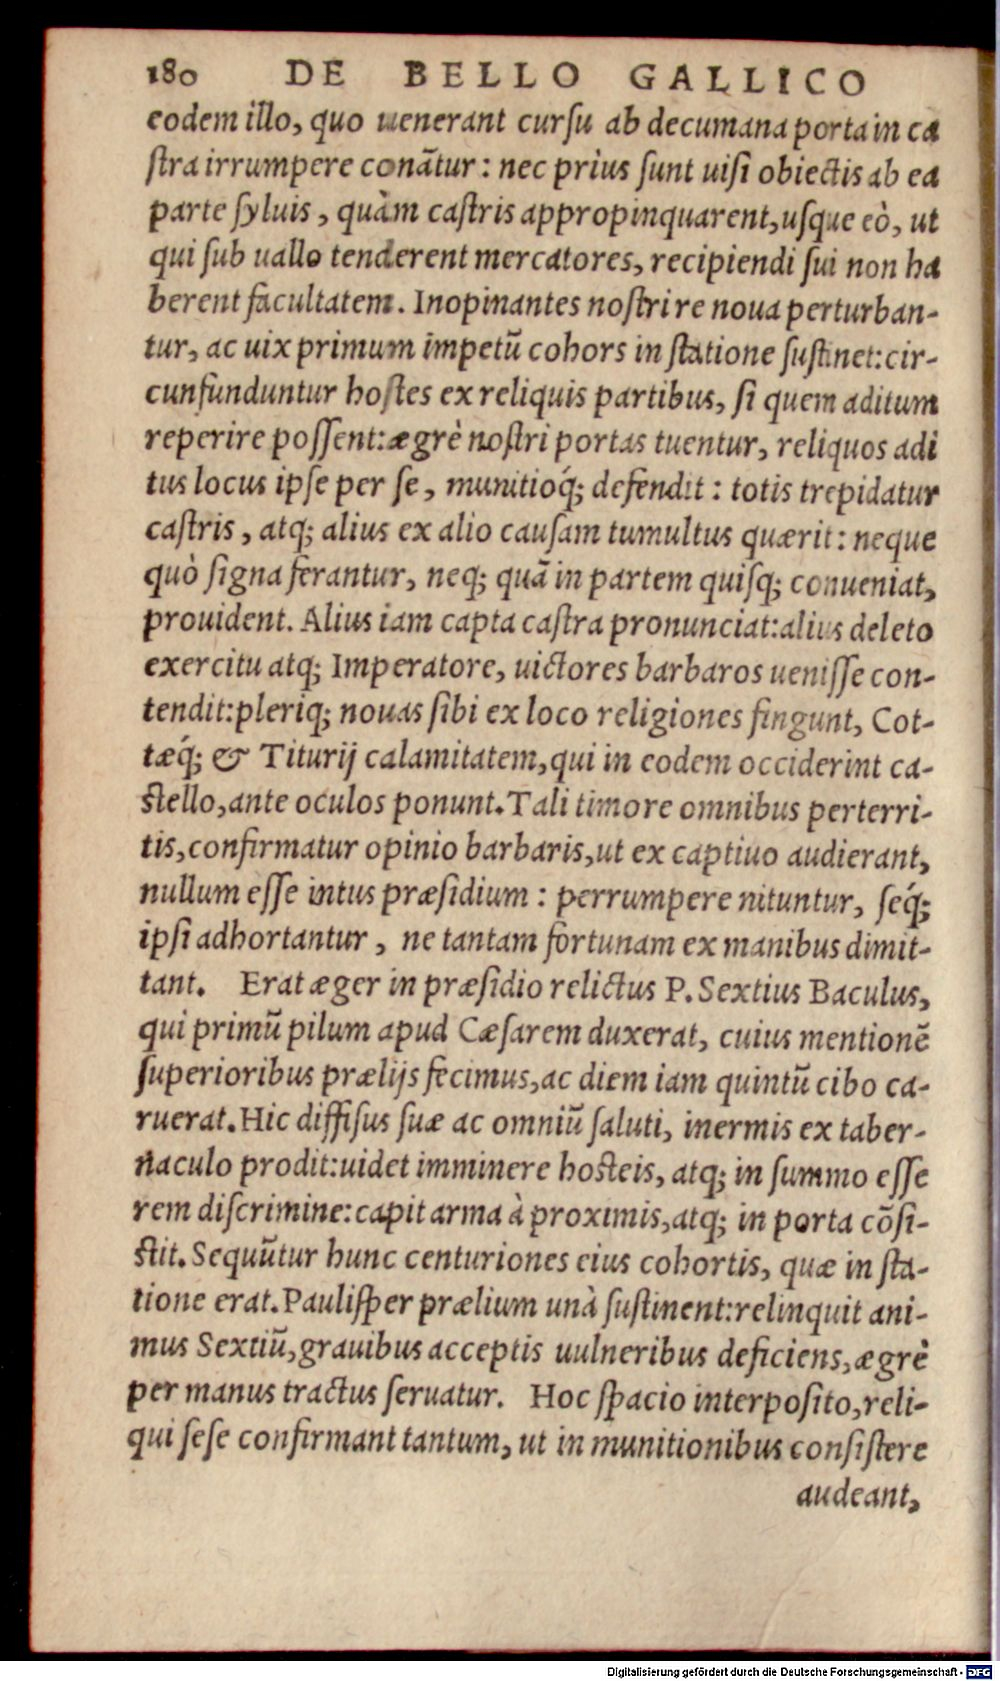 180 DE BELLO GALLICO
eodem illo, quo uenerant curſu ab decumana porta in ca
ſtra irrumpere conãtur: nec prius ſunt uiſi obiectis ab ea
parte ſyluis, quàm caſtris appropinquarent, uſque eò, ut
qui ſub uallo tenderent mercatores, recipiendi ſui non ha
berent facultatem. Inopinantes noſtri re noua perturban-
tur, ac uix primum impetũ cohors in ſtatione ſuſtinet: cir-
cunfunduntur hoſtes ex reliquis partibus, ſi quem aditum
reperire poſſent: ægrè noſtri portas tuentur, reliquos adi
tus locus ipſe per ſe, munitioq́; defendit: totis trepidatur
caſtris, atq; alius ex alio cauſam tumultus quærit: neque
quò ſigna ferantur, neq; quã in partem quiſq; conueniat,
prouident. Alius iam capta caſtra pronunciat: alius deleto
exercitu atq; Imperatore, uictores barbaros ueniſſe con-
tendit: pleriq; nouas ſibi ex loco religiones fingunt, Cot-
tæq́; & Titurij calamitatem, qui in eodem occiderint ca-
ſtello, ante oculos ponunt. Tali timore omnibus perterri-
tis, confirmatur opinio barbaris, ut ex captiuo audierant,
nullum eſſe intus præſidium: perrumpere nituntur, ſeq́;
ipſi adhortantur, ne tantam fortunam ex manibus dimit-
tant. Erat æger in præſidio relictus P. Sextius Baculus,
qui primũ pilum apud Cæſarem duxerat, cuius mentionẽ
ſuperioribus prælijs fecimus, ac diem iam quintũ cibo ca-
ruerat. Hic diffiſus ſuæ ac omniũ ſaluti, inermis ex taber-
naculo prodit: uidet imminere hoſteis, atq; in ſummo eſſe
rem diſcrimine: capit arma à proximis, atq; in porta cõſi-
ſtit. Sequũtur hunc centuriones eius cohortis, quæ in ſta-
tione erat. Pauliſper prælium unà ſuſtinent: relinquit ani-
mus Sextiũ, grauibus acceptis uulneribus deficiens, ægrè
per manus tractus ſeruatur. Hoc ſpacio interpoſito, reli-
qui ſeſe confirmant tantum, ut in munitionibus conſiſtere
audeant,
Digitalisierung gefördert durch die Deutsche Forschungsgemeinschaft - DFG